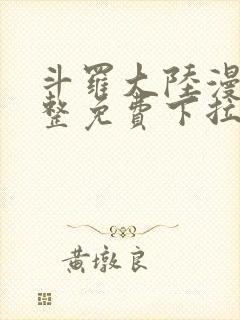 斗羅大陸漫
整免費下拉
黄墩良